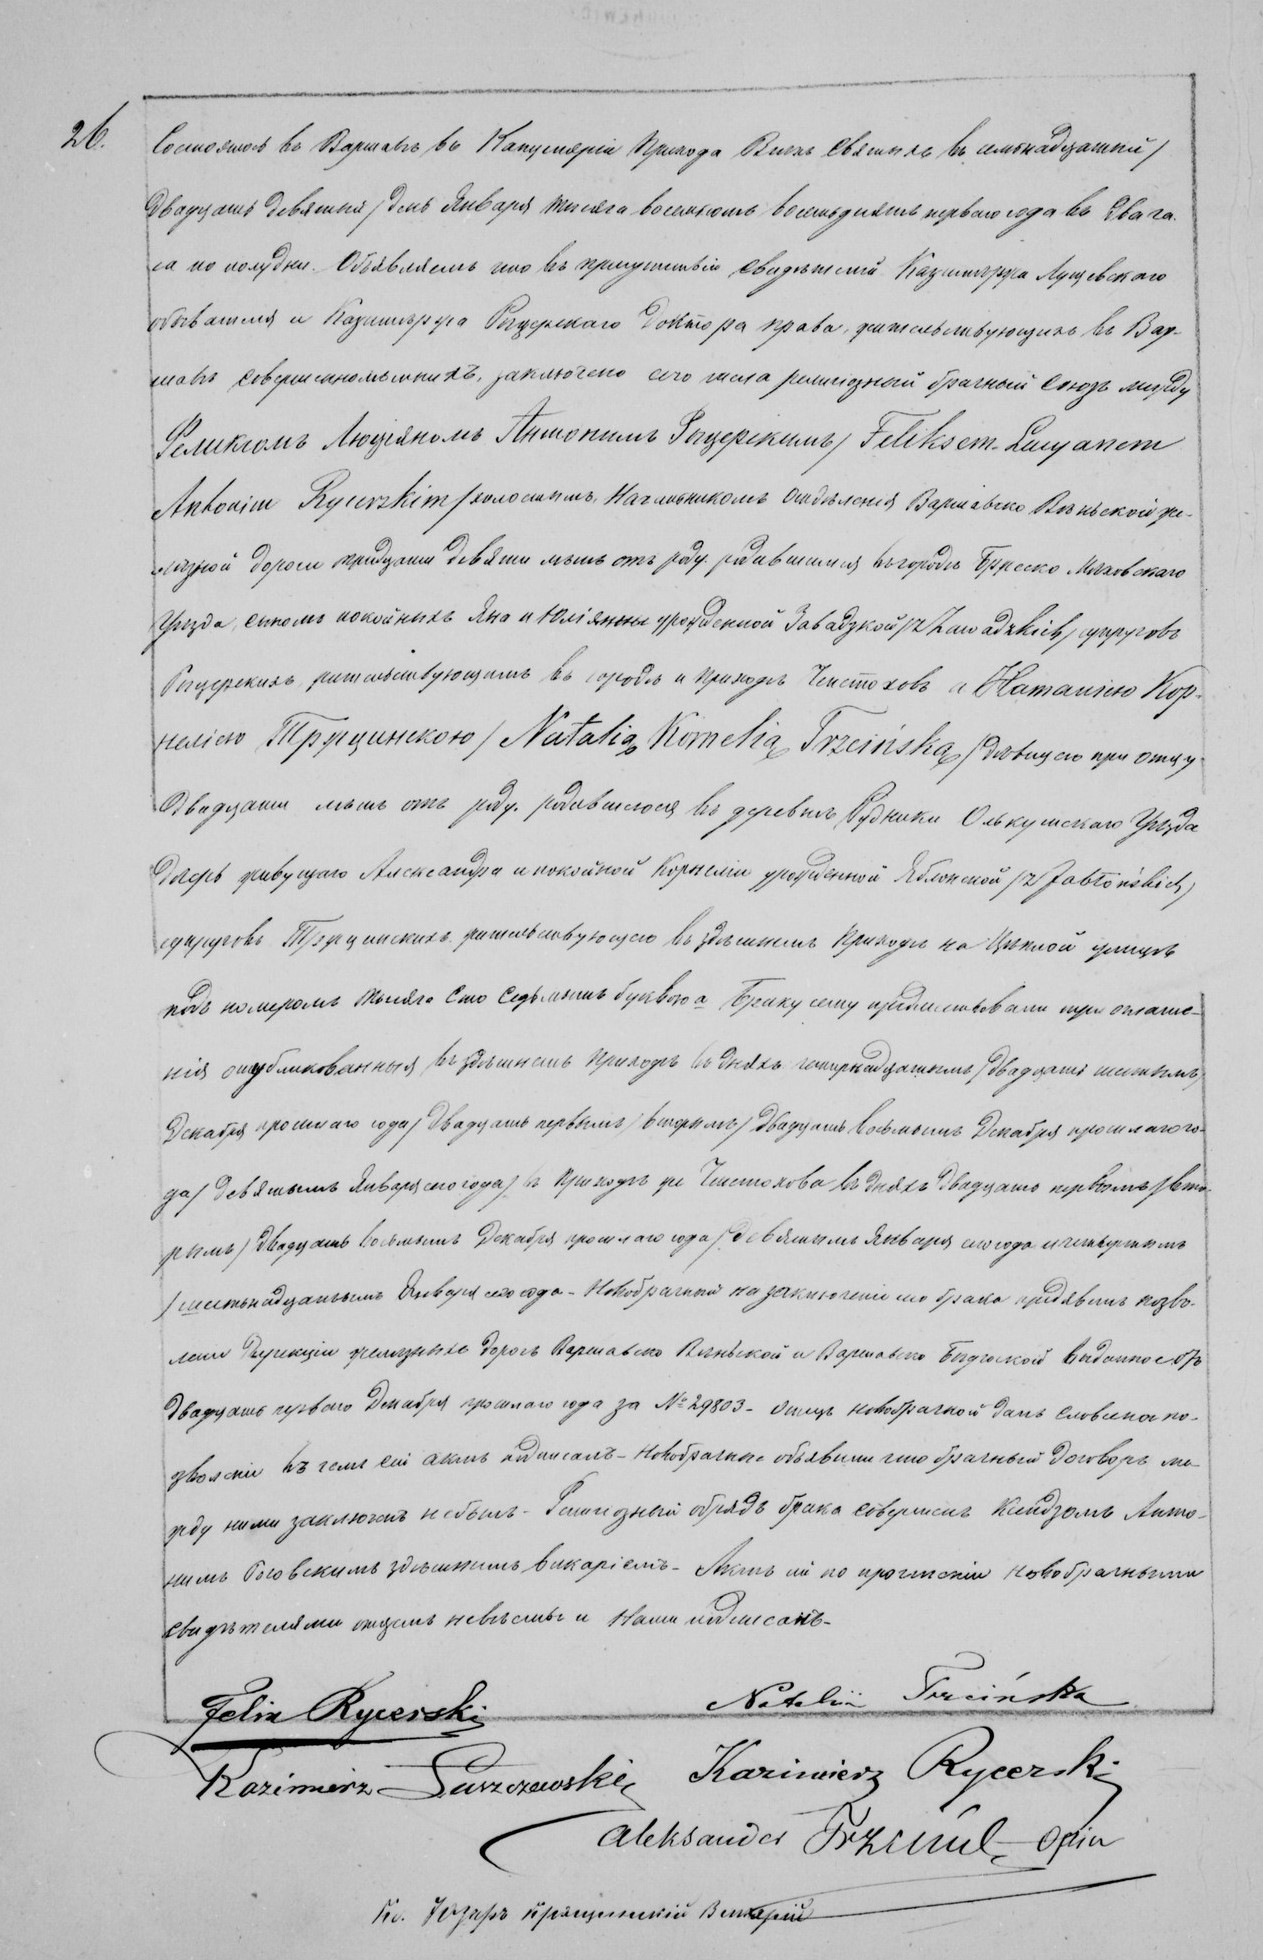 26.
Состоялось въ Варшавѣ въ Канцеляріи Прихода Всѣхъ Святыхъ въ семнадцатый /
двадцать девятый / день Января тысяча восемьсотъ восемьдесятъ перваго года въ два ча-
са по полудни. Объявляемъ что въ присутствіи свидѣтелей Казимѣржа Лущевскаго
обывателя и Казимѣржа Рыцерскаго Доктора права, жительствующихъ въ Вар-
шавѣ совершеннолѣтнихъ, заключено сего числа религіозный брачный союзъ между
Феликсомъ Люціяномъ Антонимъ Рыцерскимъ / Feliksem Lucyanem
Antonim Rycerskim / холостымъ, Начальникомъ отдѣленія Варшавско Вѣнской же-
лѣзной дороги тридцати девяти лѣтъ отъ роду родившимся въ городѣ Бржеско Мѣховскаго
Уѣзда, сыномъ покойныхъ Яна и Юліянны урожденной Завадзкой / z Zawadzkich / супруговъ
Рыцерскихъ, жительствующимъ въ городѣ и Приходѣ Ченстоховъ а Наталіею Кор-
неліею Тржцинскою / Natalią Kornelią Trzcińską / дѣвицею при отцу
двадцати лѣтъ отъ роду, родившеюся въ деревнѣ Рудники Олькушскаго Уѣзда
дочерь живущаго Александра и покойной Корнеліи урожденной Яблонской / z Jabłońskich /
супруговъ Тржцинскихъ, жительствующею въ здѣшнемъ Приходѣ на Цѣплой улицѣ
подъ номеромъ тысяча сто седьмымъ буквою а Браку сему предшествовали три оглаше-
нія опубликованныя въ здѣшнемъ Приходѣ въ дняхъ четырнадцатымъ / двадцать шестымъ /
Декабря прошлаго года / двадцать первымъ / вторымъ / двадцать восьмымъ Декабря прошлаго го-
да / девятымъ Января сего года / въ Приходѣ же Ченстохова въ дняхъ двадцать первымъ / вто-
рымъ / двадцать восьмымъ Декабря прошлаго года / девятымъ Января сего года и четвертымъ
/ шестьнадцатымъ Января сего года - Новобрачный на заключеніе сего брака предъявилъ позво-
леніе Дирекціи желѣзныхъ дорогъ Варшавско Вѣнской и Варшавско Быдгоской выданное отъ
двадцать перваго Декабря прошлаго года за № 29803 - отецъ новобрачной далъ словесное по-
зволеніе въ чемъ сей актъ подписалъ - Новобрачные объявили что брачный договоръ ме-
жду ними заключенъ небылъ - Религіозный обрядъ брака совершенъ Ксендзомъ Анто-
нимъ Роговскимъ здѣшнимъ викаріемъ - Актъ сей по прочтеніи новобрачными
свидѣтелями отцемъ невѣсты и Нами подписанъ -
Felix Rycerski
Natalia Trzcińska
Kazimierz Luszczewski
Kazimierz Rycerski
Aleksander Trzciński Ojciec
Кс. Юзефъ Викарій